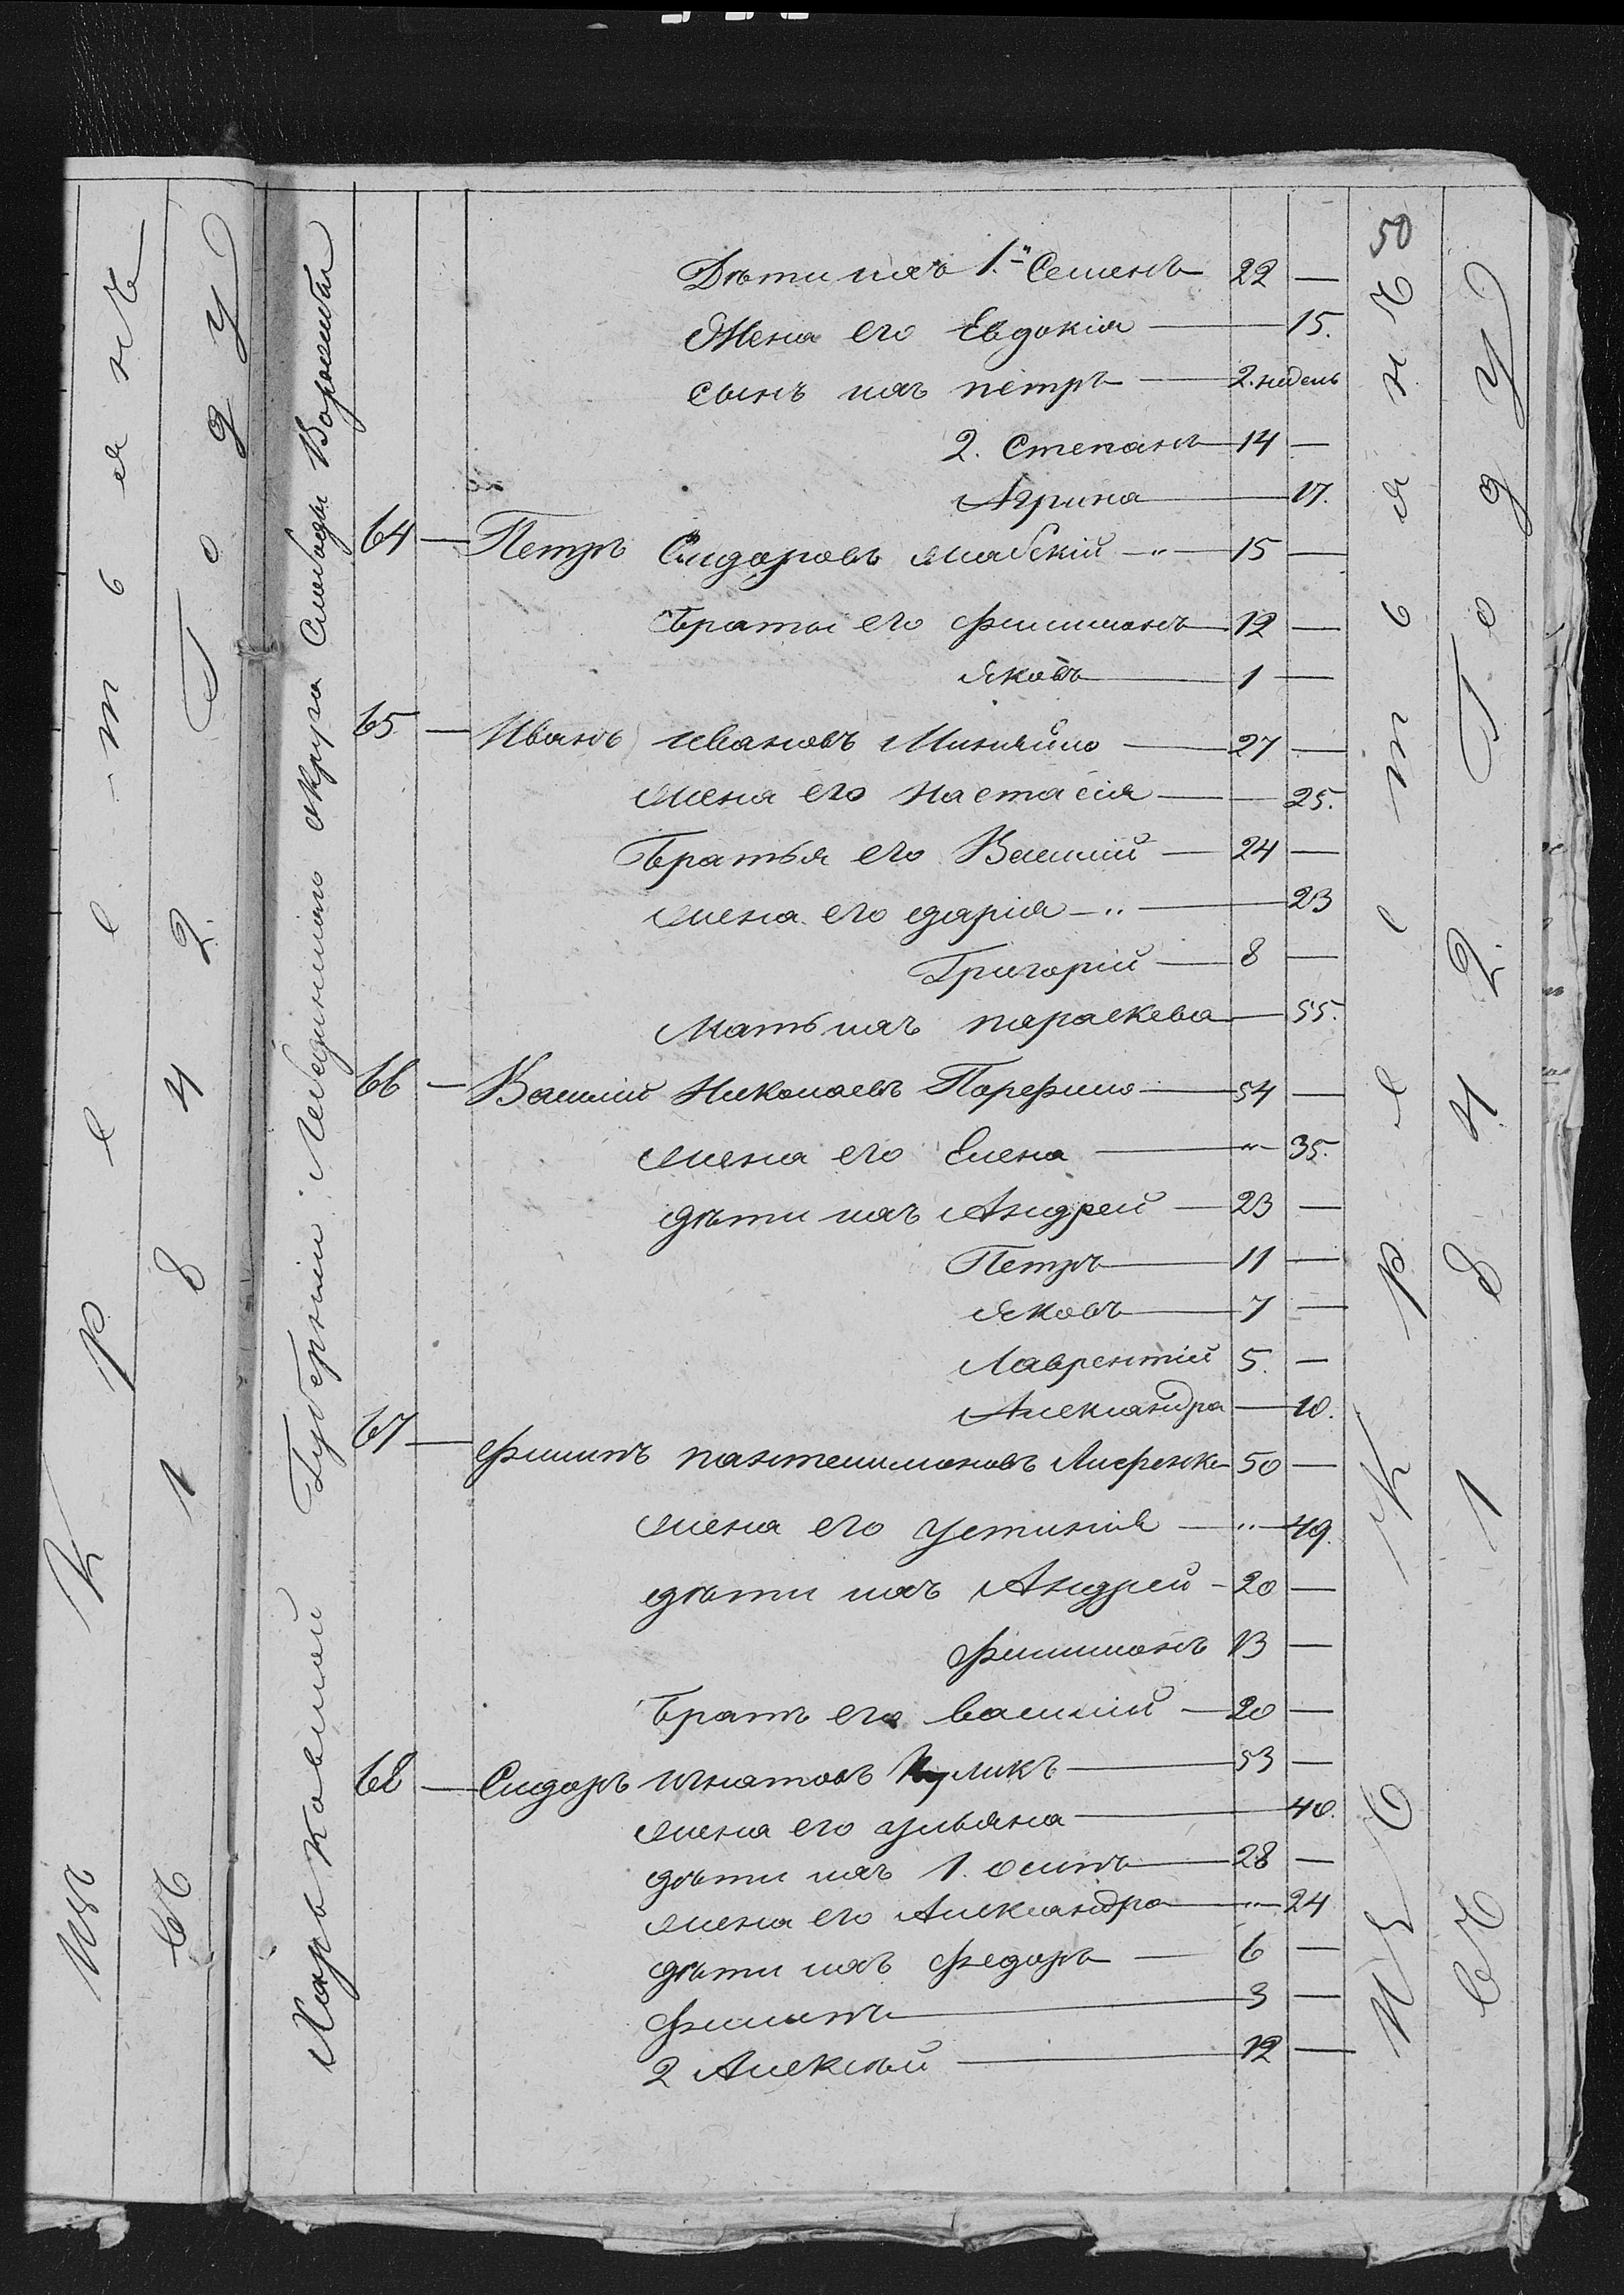 50
Дѣти ихъ 1.й Семенъ 22 —
Жена его Евдокія — 15.
сынъ ихъ петръ — 2. недель
2. Степанъ 14 —
Агрипа — 17.
64 — Петръ Сидоровъ — 15 —
Браты его филимонъ 12 —
Яковъ — 1 —
65 — Иванъ ивановъ — 27 —
жена его настасія — 25.
Братья его Василій — 24 —
жена его дарія — 23
Григорій — 8 —
Мать ихъ параскева — 55.
66 — Василій Николаевъ — 54 —
жена его Елена — " — 35.
дѣти ихъ Андрей — 23 —
Петръ — 11 —
Яковъ — 7 —
Лаврентій 5. —
Александра — 10.
67 — филипъ пантелимоновъ 50 —
жена его устинія — " — 49.
дѣти ихъ Андрей — 20 —
филимонъ 13 —
Братъ его василій — 20 —
68 — Сидоръ игнатовъ Куликъ — 53 —
жена его ульяна — 40.
дѣти ихъ 1. осипъ — 28 —
жена его Александра — " — 24
дѣти ихъ федоръ — 6 —
филипъ — 3 —
2 Алексѣй — 12 —
Харьковской Губерніи Лебединского округа Слободы Ворожбы
Изъ Крестьянъ
въ 1842. Году